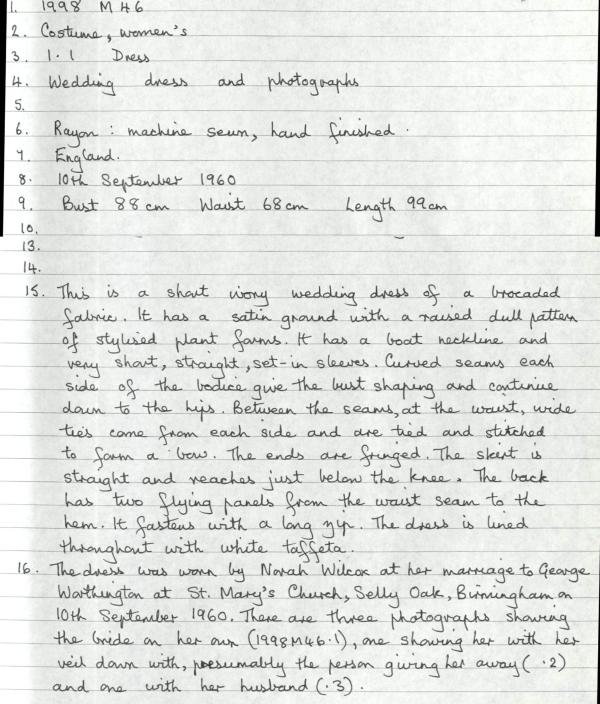 1. 1998 M 46
2. Costume, women's
3. 1.1 Dress
4. Wedding dress and photographs
5.
6. Rayon : machine sewn, hand finished.
7. England.
8. 10th September 1960
9. Bust 88cm Waist 68cm Length 99cm
10.
13.
14.
15. This is a short ivory wedding dress of a brocaded
fabric. It has a satin ground with a raised dull pattern
of stylised plant forms. It has a boat neckline and
very short, straight, set-in sleeves. Curved seams each
side of the bodice give the bust shaping and continue
down to the hips. Between the seams, at the waist, wide
ties come from each side and are tied and stitched
to form a bow. The ends are fringed. The skirt is
straight and reaches just below the knee. The back
has two flying panels from the waist seam to the
hem. It fastens with a long zip. The dress is lined
throughout with white taffeta.
16. The dress was worn by Norah Wilcox at her marriage to George
Worthington at St. Mary's Church, Selly Oak, Birmingham on
10th September 1960. There are three photographs showing
the bride on her own (1998M46.1), one showing her with her
veil down with, presumably the person giving her away (.2)
and one with her husband (.3).